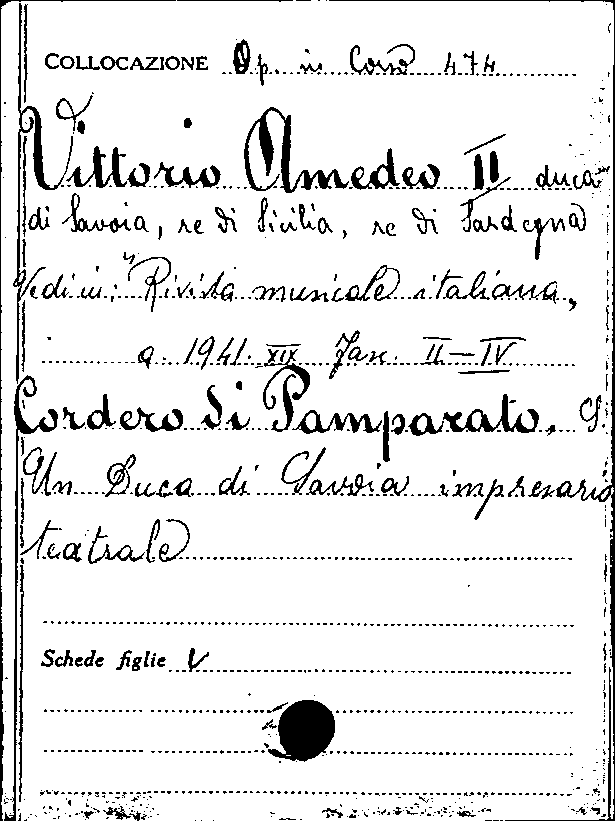 COLLOCAZIONE Op. in Corso 474
Vittorio Amedeo II duca
di Savoia, re di Sicilia, re di Sardegna
Vedi in: "Rivista musicale italiana,
a. 1941. XIX Fasc. II-IV
Cordero di Pamparato, S.
Un Duca di Savoia impresario
teatrale
Schede figlie V